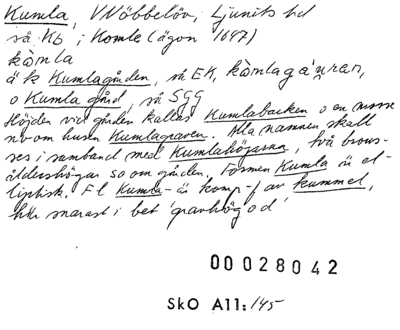 Kumla, VNöbbelöv, Ljunits hd
så Kb ; Komle (ägon 1697)
kòmla
äk Kumlagården, så EK, kòmlagánran,
o Kumla gård, så SGG
Höjden vid gården kallas Kumlabacken o en mosse
nv om husen Kumlagraven. Alla namnen skall
ses i samband med Kumlahögarna, två brons-
åldershögar so om gården. Formen Kumla är el-
liptisk. F l Kumla- är komp-f av kummel,
här snarast i bet 'gravhög od'
00028042
SkO A11:145